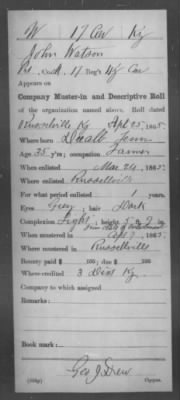 W 17 Cav Ky
John Watson
Pvt, Co. A, 17 Reg't Ky Cav
Appears on
Company Muster-in and Descriptive Roll
of the organization named above. Roll dated
Russellville Ky Apl 25, 1865.
Where born Tenn
Age 35 y'rs; occupation Farmer
When enlisted Mar 24, 1865.
Where enlisted Russellville
For what period enlisted 1 years.
Eyes Grey; hair Dark
Complexion Light; height 5 ft. in.
from date of enrollment
When mustered in Apl, 1865.
Where mustered in Russellville
Bounty paid $ 100; due $ 100
Where credited 3 Dist Ky.
Company to which assigned
Remarks:
Book mark:
Geo J Drew
Copyist.